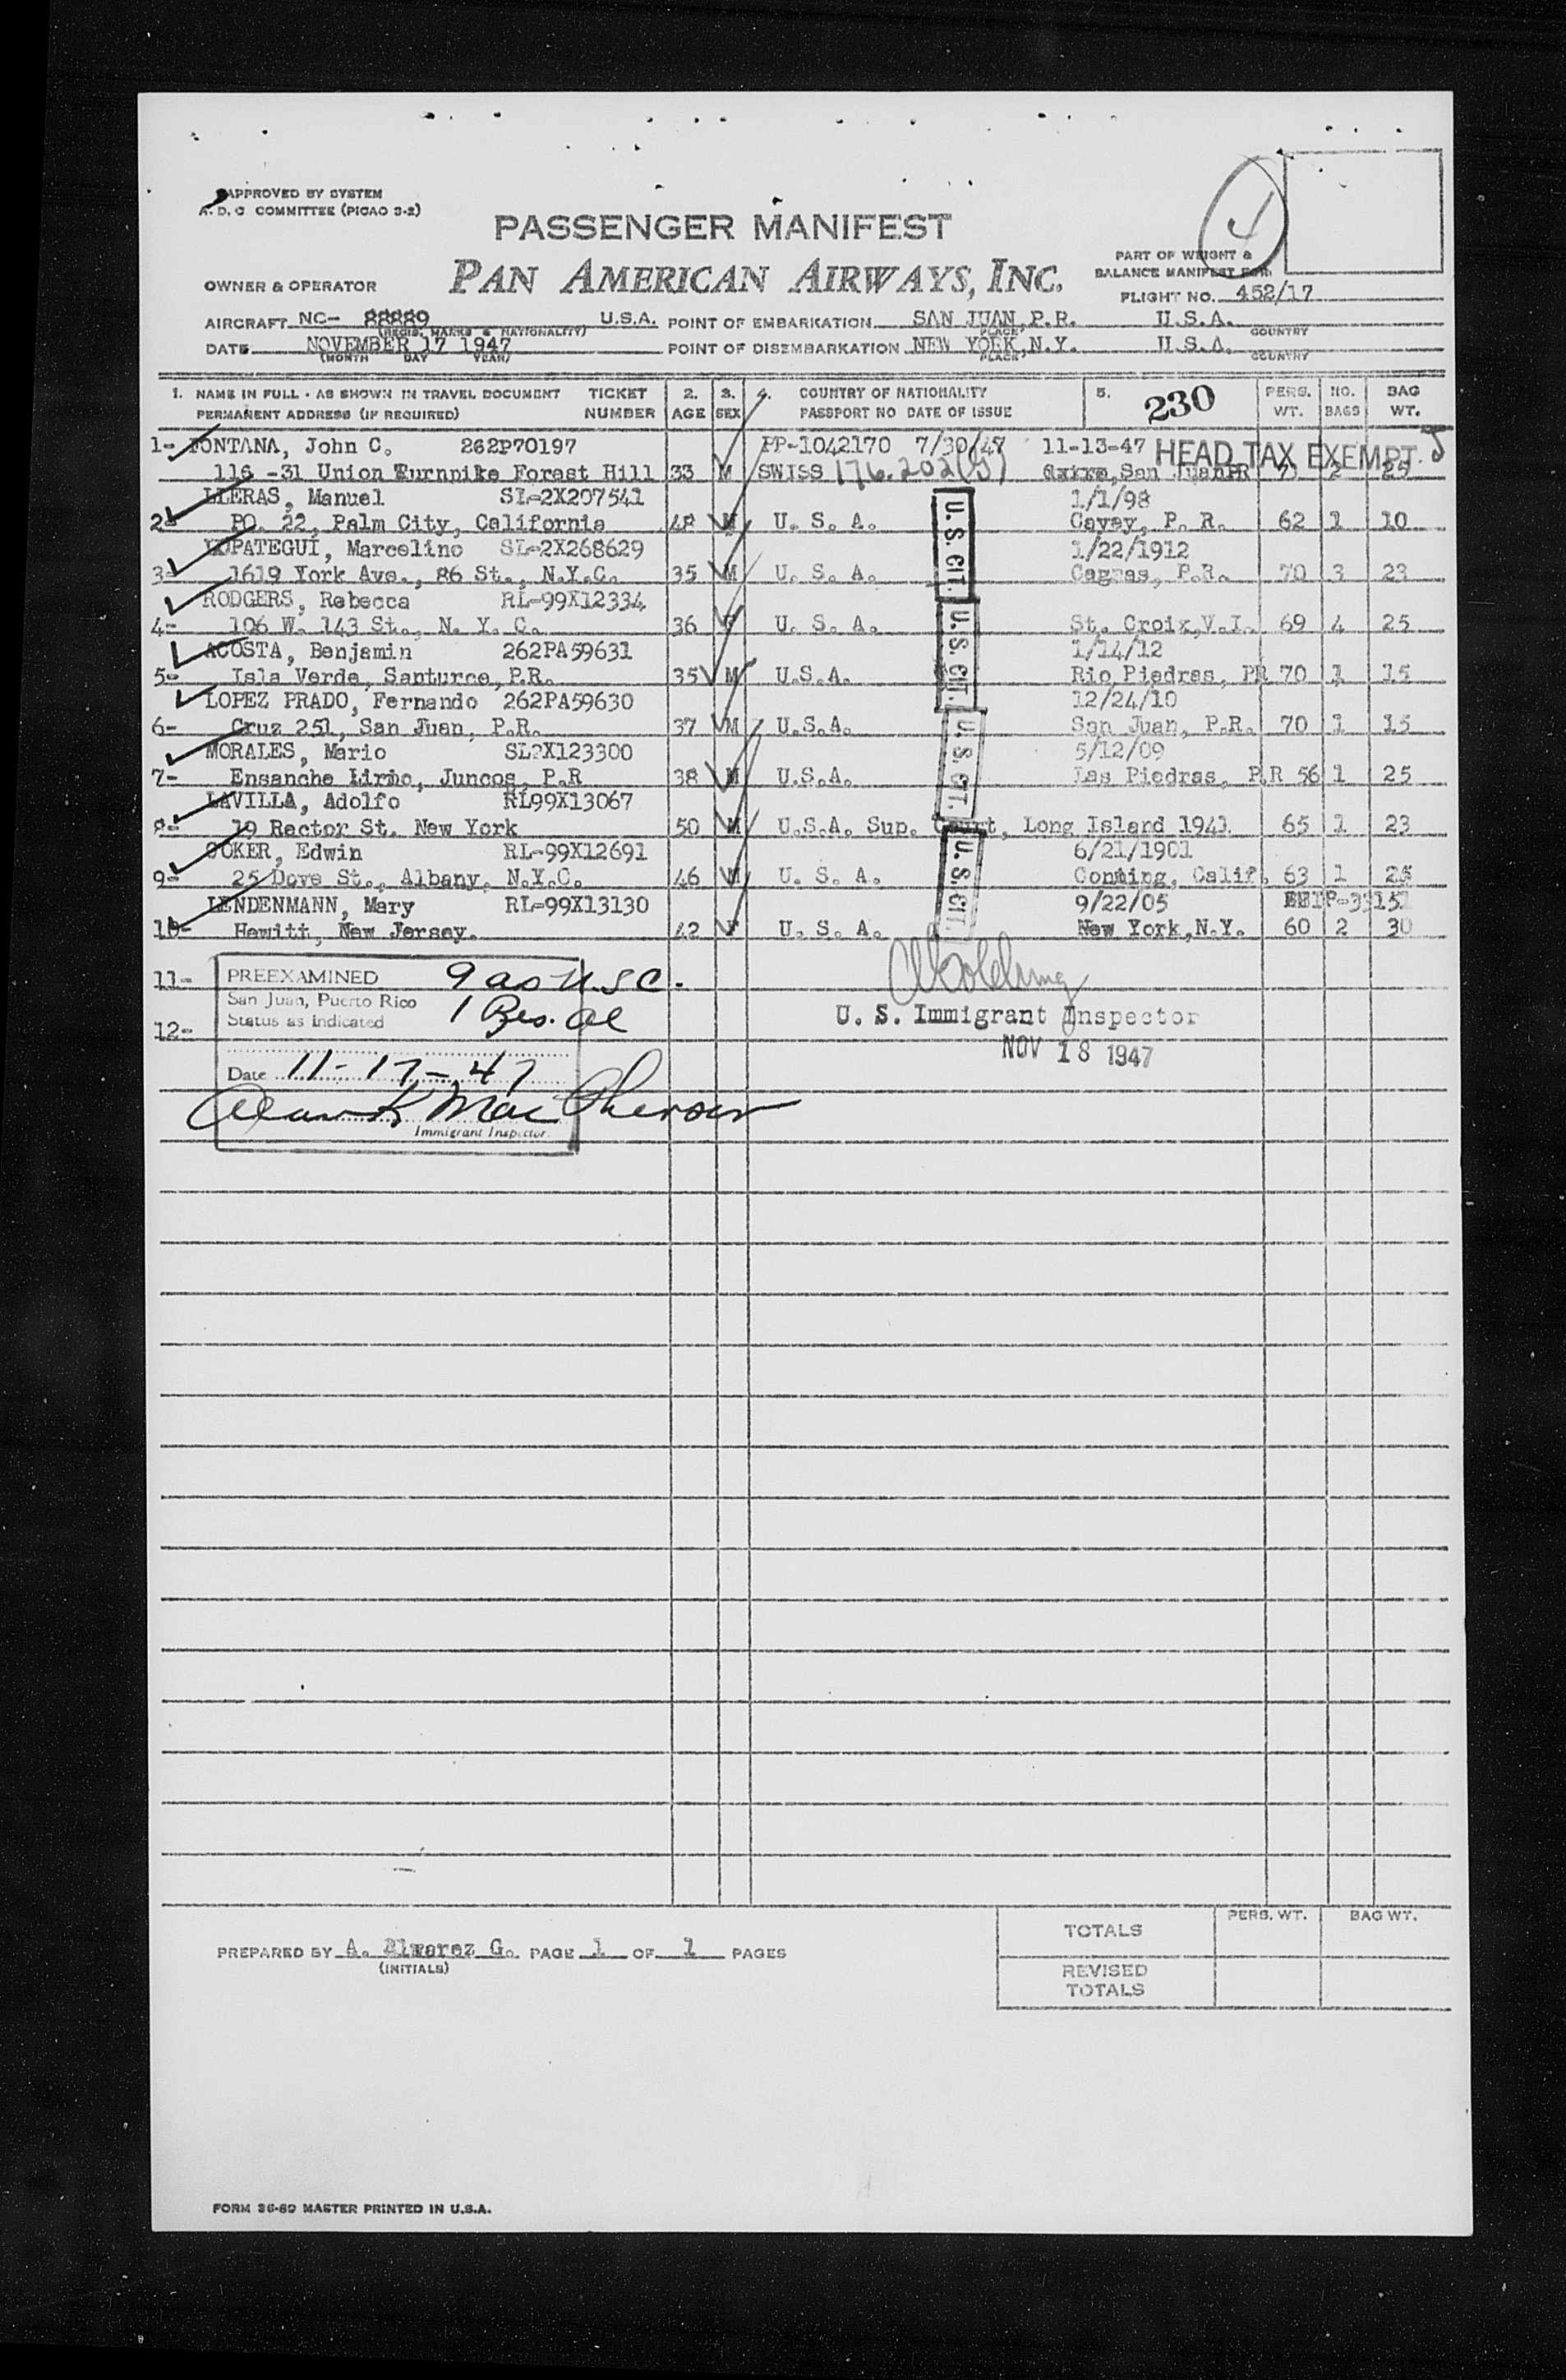 APPROVED BY SYSTEM
A. D. C COMMITTEE (PICAO 3-2)
4
PASSENGER MANIFEST
PAN AMERICAN AIRWAYS, INC.
PART OF WEIGHT &
BALANCE MANIFEST FOR
OWNER & OPERATOR
FLIGHT NO. 452/17
AIRCRAFT NC- 88880 U.S.A. POINT OF EMBARKATION SAN JUAN, P.R. U.S.A.
(REGIS. MARKS & NATIONALITY) PLACE COUNTRY
DATE NOVEMBER 17 1947 POINT OF DISEMBARKATION NEW YORK, N.Y. U.S.A.
(MONTH DAY YEAR) PLACE COUNTRY
1. NAME IN FULL - AS SHOWN IN TRAVEL DOCUMENT TICKET 2. 3. 4. COUNTRY OF NATIONALITY 5. 230 PERS. NO. BAG
PERMANENT ADDRESS (IF REQUIRED) NUMBER AGE SEX PASSPORT NO DATE OF ISSUE WT. BAGS WT.
1- FONTANA, John C. 262P70197 PP-1042170 7/30/47 11-13-47 HEAD TAX EXEMPT
116 -31 Union Turnpike Forest Hill 33 M SWISS 176.202(J) San Juan PR 2 25
LLERAS, Manuel SL-2X207541 1/1/98
2- PO. 22, Palm City, California 48 M U. S. A. U.S. CIT. Cayey, P. R. 62 1 10
LUPATEGUI, Marcelino SL-2X268629 1/22/1912
3- 1619 York Ave., 86 St., N.Y.C. 35 M U. S. A. Cagras, P.R. 70 3 23
RODGERS, Rebecca RL-99X12334
4- 106 W. 143 St., N. Y. C. 36 F U. S. A. U.S. CIT. St. Croix, V.I. 69 4 25
ACOSTA, Benjamin 262PA59631 1/14/12
5- Isla Verde, Santurce, P.R. 35 M U.S.A. Rio Piedras, PR 70 1 15
LOPEZ PRADO, Fernando 262PA59630 12/24/10
6- Cruz 251, San Juan, P.R. 37 M U.S.A. U.S. CIT. San Juan, P.R. 70 1 15
MORALES, Mario SL2X123300 5/12/09
7- Ensanche Lirio, Juncos, P.R 38 M U.S.A. Las Piedras, P.R 56 1 25
LAVILLA, Adolfo RL99X13067
8- 19 Rector St. New York 50 M U.S.A. Sup. Court, Long Island 1941 65 1 23
COKER, Edwin RL-99X12691 6/21/1901
9- 25 Dove St., Albany, N.Y.C. 46 M U. S. A. U.S. CIT. Conning, Calif. 63 1 25
LENDENMANN, Mary RL-99X13130 9/22/05
10- Hewitt, New Jersey. 42 F U. S. A. New York, N.Y. 60 2 30
11- PREEXAMINED 9 as U.S.C.
San Juan, Puerto Rico 1 Res. al
Status as indicated
U. S. Immigrant Inspector
12-
NOV 18 1947
Date 11-17-47
Alan K MacPherson
Immigrant Inspector.
TOTALS PERS. WT. BAG WT.
PREPARED BY A. Alvarez G. PAGE 1 OF 1 PAGES
(INITIALS)
REVISED
TOTALS
FORM 36-69 MASTER PRINTED IN U.S.A.